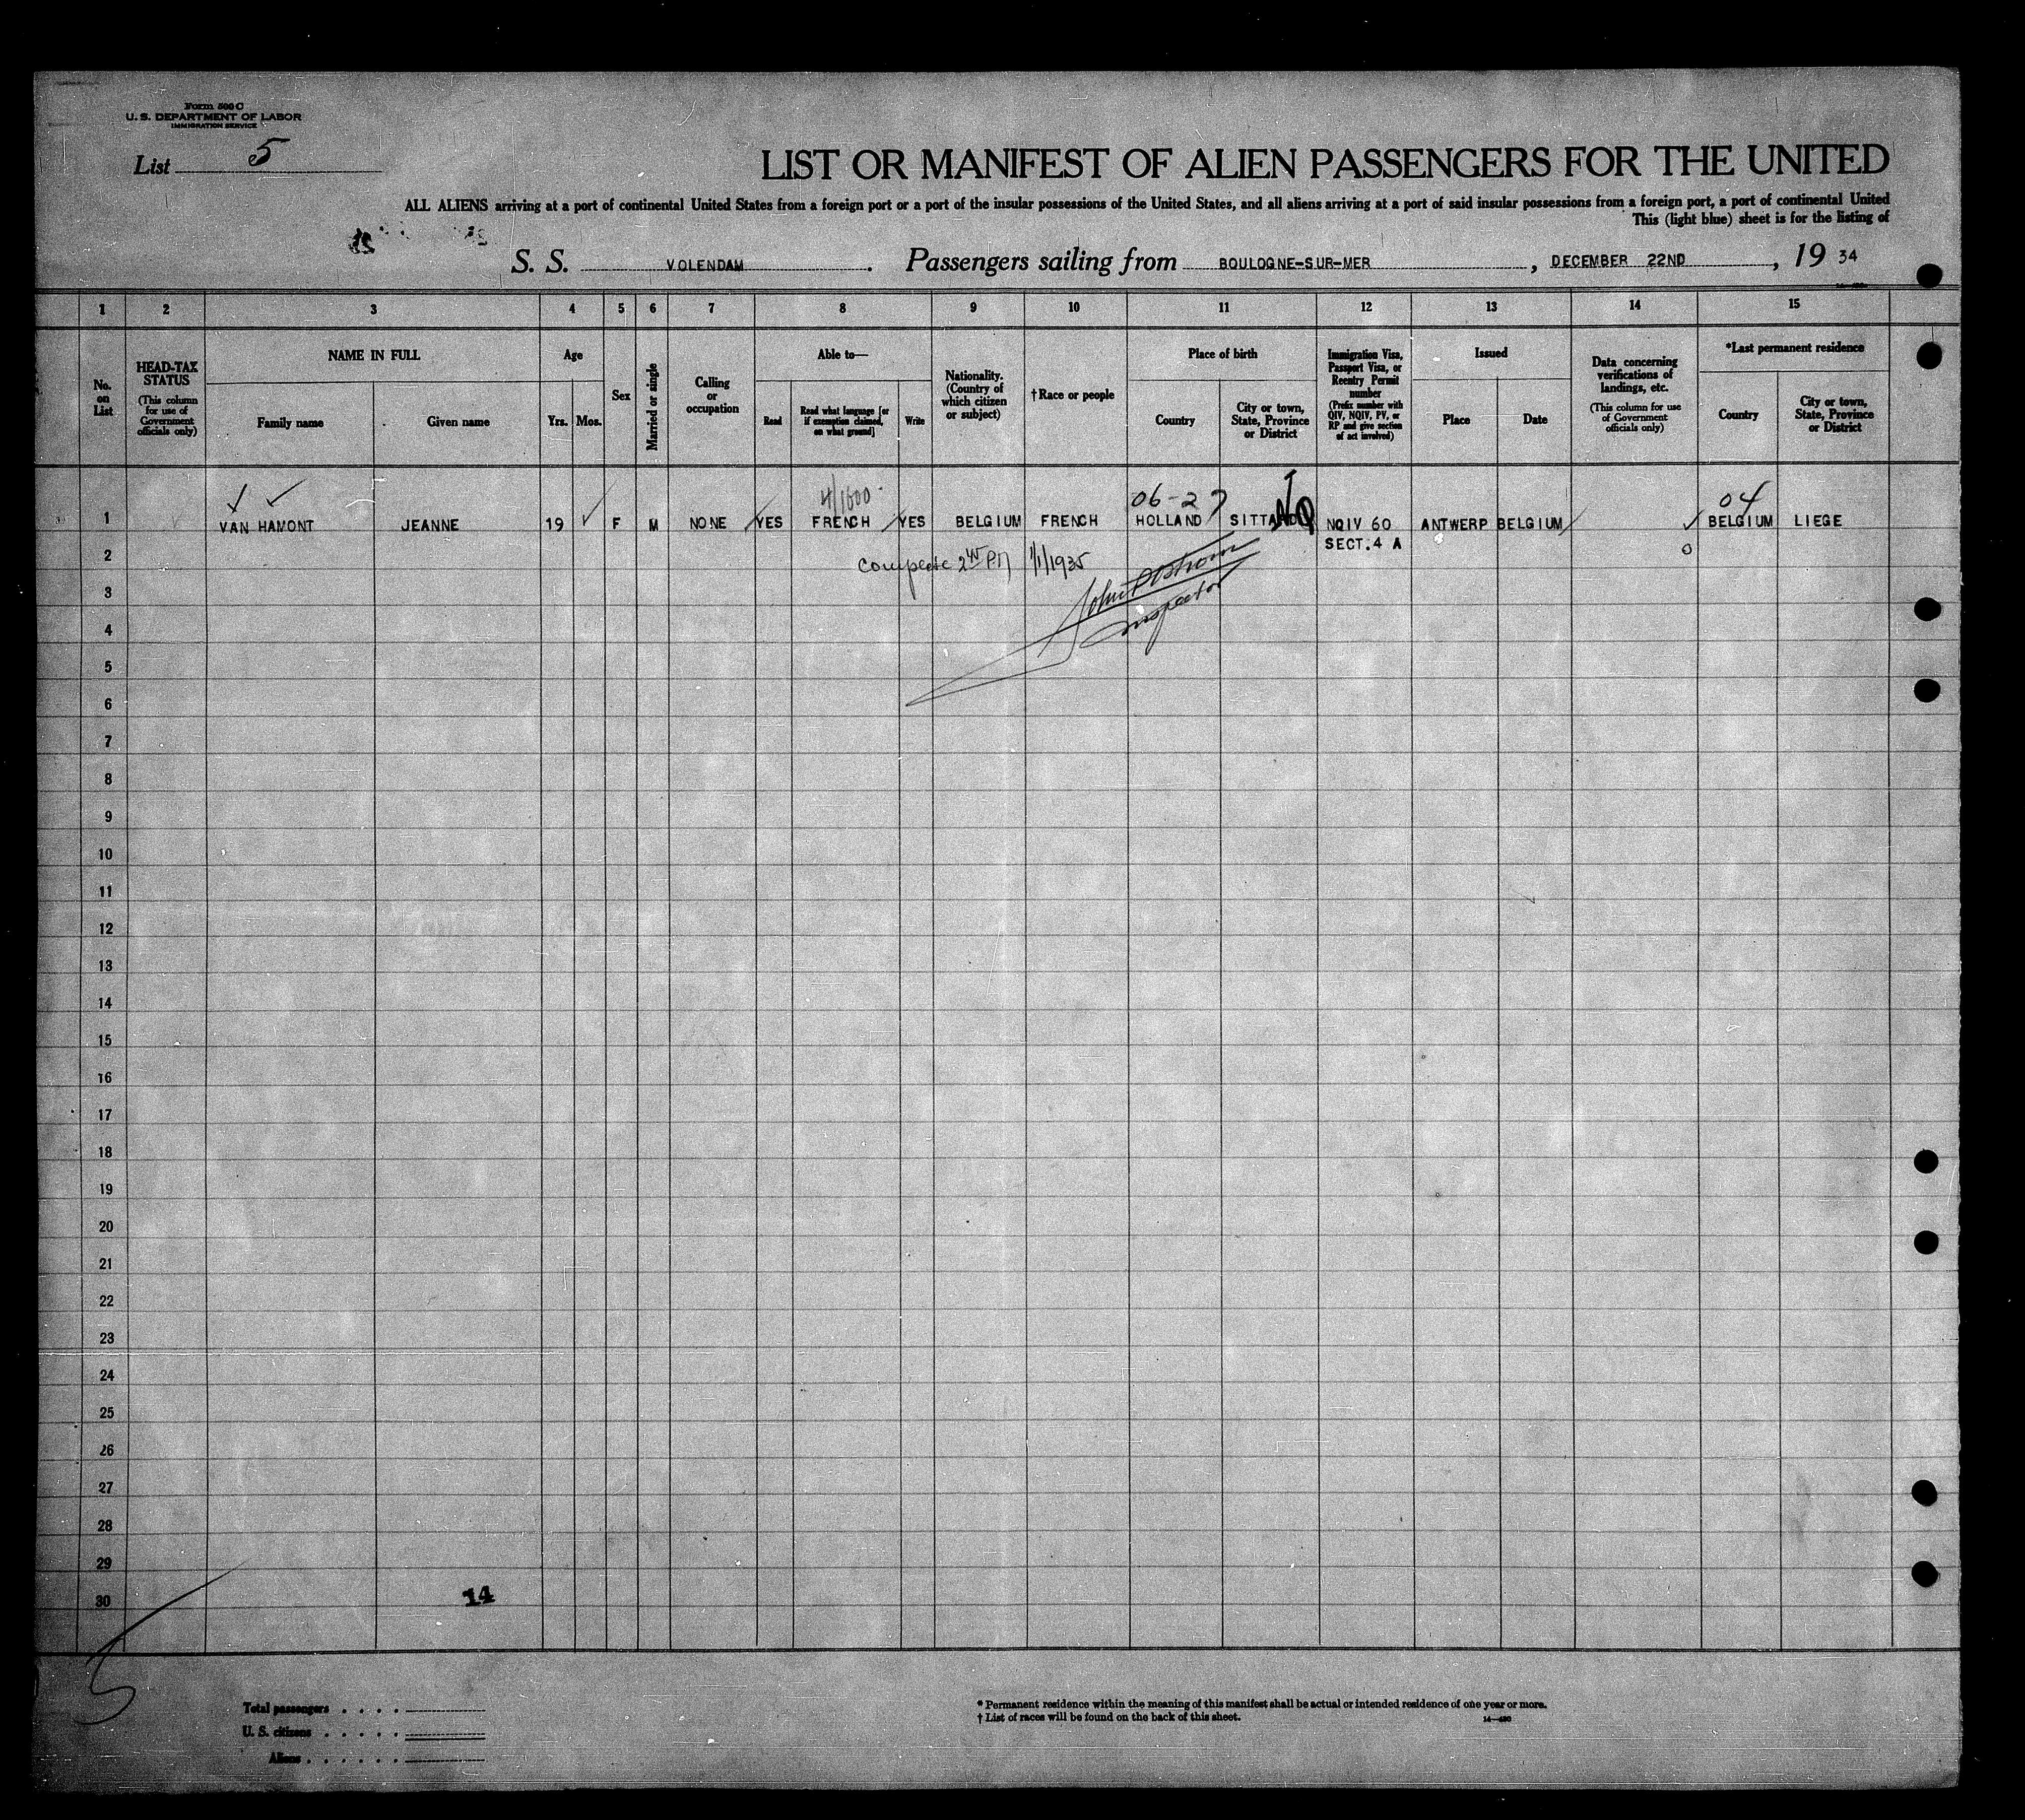 Form 500 C
U. S. DEPARTMENT OF LABOR
IMMIGRATION SERVICE
List 5
LIST OR MANIFEST OF ALIEN PASSENGERS FOR THE UNITED
ALL ALIENS arriving at a port of continental United States from a foreign port or a port of the insular possessions of the United States, and all aliens arriving at a port of said insular possessions from a foreign port, a port of continental United
This (light blue) sheet is for the listing of
S. S. VOLENDAM. Passengers sailing from BOULOGNE-SUR-MER, DECEMBER 22ND, 19 34
1 2 3 4 5 6 7 8 9 10 11 12 13 14 15
No. on List
HEAD-TAX STATUS (This column for use of Government officials only)
NAME IN FULL
Family name
Given name
Age
Yrs. Mos.
Sex
Married or single
Calling or occupation
Able to—
Read
Read what language [or if exemption claimed, on what ground]
Write
Nationality. (Country of which citizen or subject)
†Race or people
Place of birth
Country
City or town, State, Province or District
Immigration Visa, Passport Visa, or Reentry Permit number
(Prefix number with QIV, NQIV, PV, or RP and give section of act involved)
Issued
Place
Date
Data concerning verifications of landings, etc.
(This column for use of Government officials only)
*Last permanent residence
Country
City or town, State, Province or District
4/1600 06-27 04
1 VAN HAMONT JEANNE 19 F M NONE YES FRENCH YES BELGIUM FRENCH HOLLAND NQIV 60 ANTWERP BELGIUM BELGIUM LIEGE
SECT.4 A
2
1/1/1935
3
Inspector
4
5
6
7
8
9
10
11
12
13
14
15
16
17
18
19
20
21
22
23
24
25
26
27
28
29
30
14
5
Total passengers
U. S. citizens
Aliens
* Permanent residence within the meaning of this manifest shall be actual or intended residence of one year or more.
† List of races will be found on the back of this sheet.
14—480